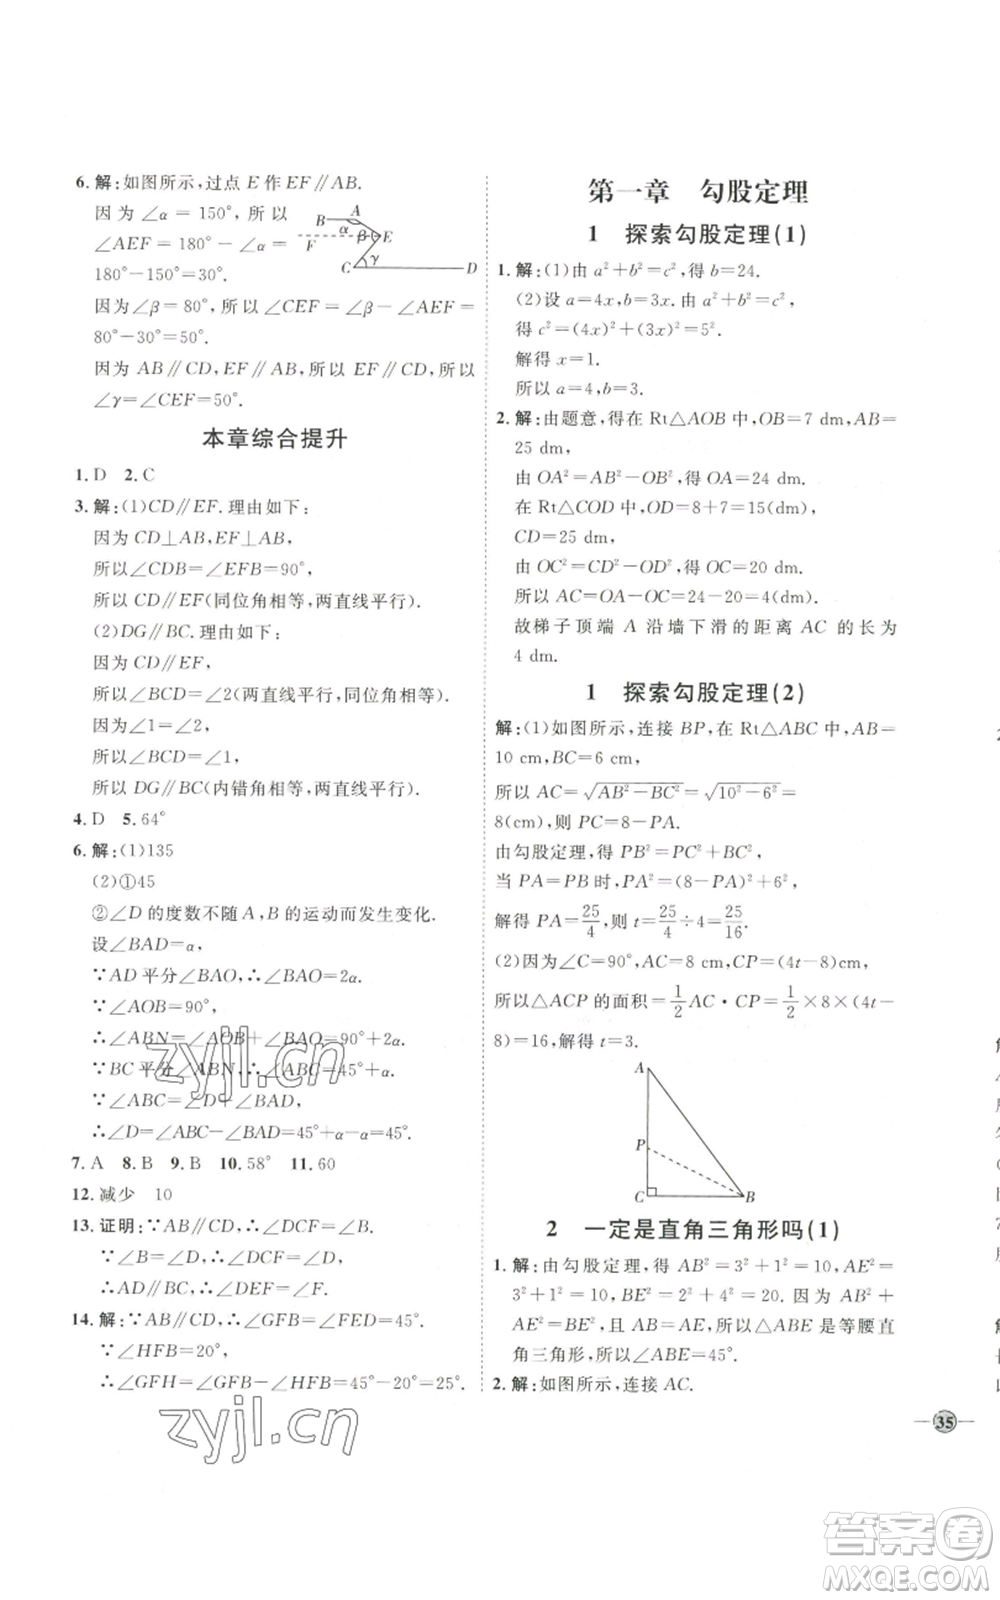 6. 解:如图所示,过点 E 作 EF∥AB.
因为∠α=150°,所以
∠AEF=180°-∠α=
180°-150°=30°.
B A α F β E C γ D
因为∠β=80°,所以∠CEF=∠β-∠AEF=
80°-30°=50°.
因为 AB∥CD,EF∥AB,所以 EF∥CD,所以
∠γ=∠CEF=50°.
本章综合提升
1. D 2. C
3. 解:(1)CD∥EF.理由如下:
因为 CD⊥AB,EF⊥AB,
所以∠CDB=∠EFB=90°,
所以 CD∥EF(同位角相等,两直线平行).
(2)DG∥BC.理由如下:
因为 CD∥EF,
所以∠BCD=∠2(两直线平行,同位角相等).
因为∠1=∠2,
所以∠BCD=∠1,
所以 DG∥BC(内错角相等,两直线平行).
4. D 5. 64°
6. 解:(1)135
(2)①45
②∠D 的度数不随 A,B 的运动而发生变化.
设∠BAD=α,
∵AD 平分∠BAO,∴∠BAO=2α.
∵∠AOB=90°,
∴∠ABN=∠AOB+∠BAO=90°+2α.
∵BC 平分∠ABN,∴∠ABC=45°+α.
∵∠ABC=∠D+∠BAD,
∴∠D=∠ABC-∠BAD=45°+α-α=45°.
7. A 8. B 9. B 10. 58° 11. 60
12. 减少 10
13. 证明:∵AB∥CD,∴∠DCF=∠B.
∵∠B=∠D,∴∠DCF=∠D,
∴AD∥BC,∴∠DEF=∠F.
14. 解:∵AB∥CD,∴∠GFB=∠FED=45°.
∵∠HFB=20°,
∴∠GFH=∠GFB-∠HFB=45°-20°=25°.
zyjl.cn
zyjl.cn
第一章 勾股定理
1 探索勾股定理(1)
1. 解:(1)由 a²+b²=c²,得 b=24.
(2)设 a=4x,b=3x.由 a²+b²=c²,
得 c²=(4x)²+(3x)²=5².
解得 x=1.
所以 a=4,b=3.
2. 解:由题意,得在 Rt△AOB 中,OB=7 dm,AB=
25 dm,
由 OA²=AB²-OB²,得 OA=24 dm.
在 Rt△COD 中,OD=8+7=15(dm),
CD=25 dm,
由 OC²=CD²-OD²,得 OC=20 dm.
所以 AC=OA-OC=24-20=4(dm).
故梯子顶端 A 沿墙下滑的距离 AC 的长为
4 dm.
1 探索勾股定理(2)
解:(1)如图所示,连接 BP,在 Rt△ABC 中,AB=
10 cm,BC=6 cm,
所以 AC=√(AB²-BC²)=√(10²-6²)=
8(cm),则 PC=8-PA.
由勾股定理,得 PB²=PC²+BC²,
当 PA=PB 时,PA²=(8-PA)²+6²,
解得 PA=25/4,则 t=25/4÷4=25/16.
(2)因为∠C=90°,AC=8 cm,CP=(4t-8)cm,
所以△ACP 的面积=1/2 AC·CP=1/2×8×(4t-
8)=16,解得 t=3.
A P C B
2 一定是直角三角形吗(1)
1. 解:由勾股定理,得 AB²=3²+1²=10,AE²=
3²+1²=10,BE²=2²+4²=20. 因为 AB²+
AE²=BE²,且 AB=AE,所以△ABE 是等腰直
角三角形,所以∠ABE=45°.
2. 解:如图所示,连接 AC.
35
答案卷
MXQE.COM